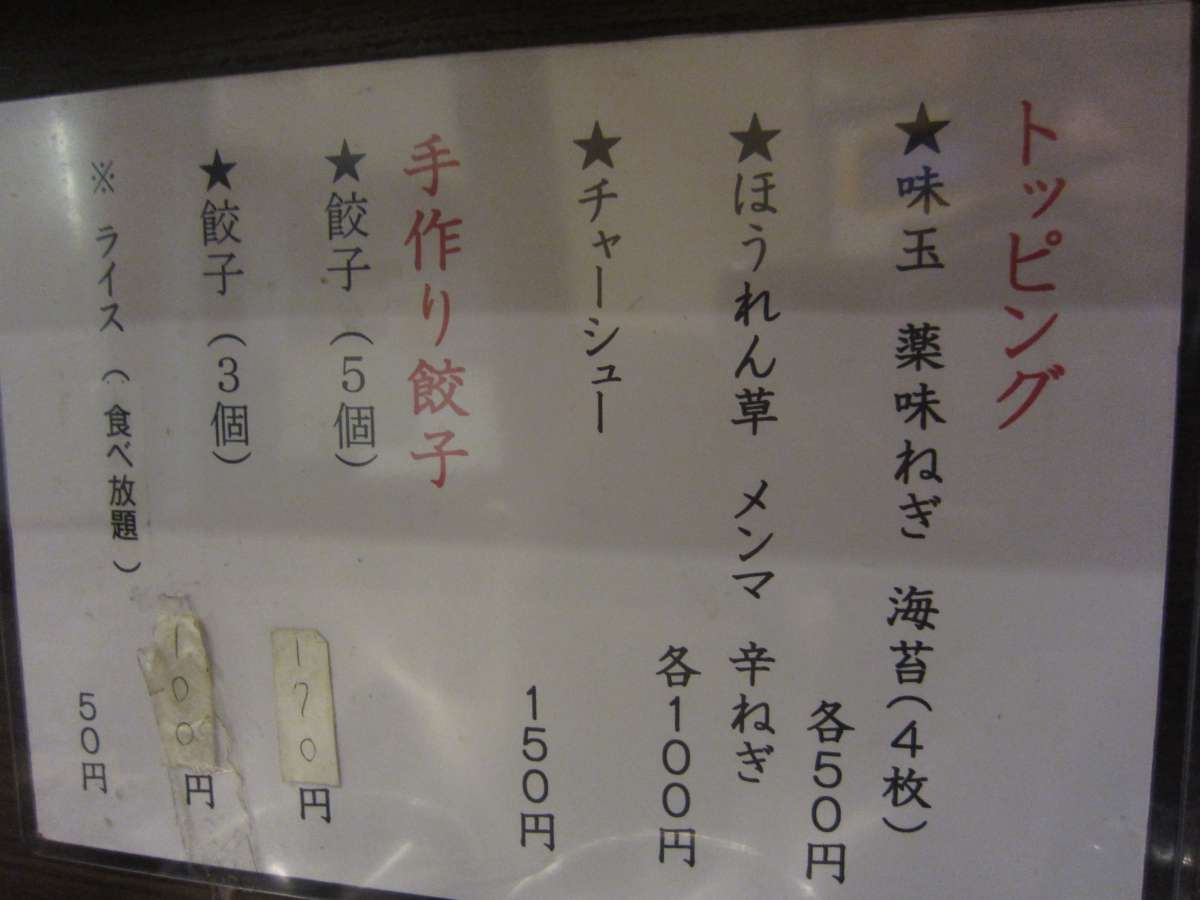 トッピング
★味玉 薬味ねぎ 海苔（4枚）
各50円
★ほうれん草 メンマ 辛ねぎ
各100円
★チャーシュー
150円
手作り餃子
★餃子（5個）
170円
★餃子（3個）
100円
※ ライス（食べ放題）
50円